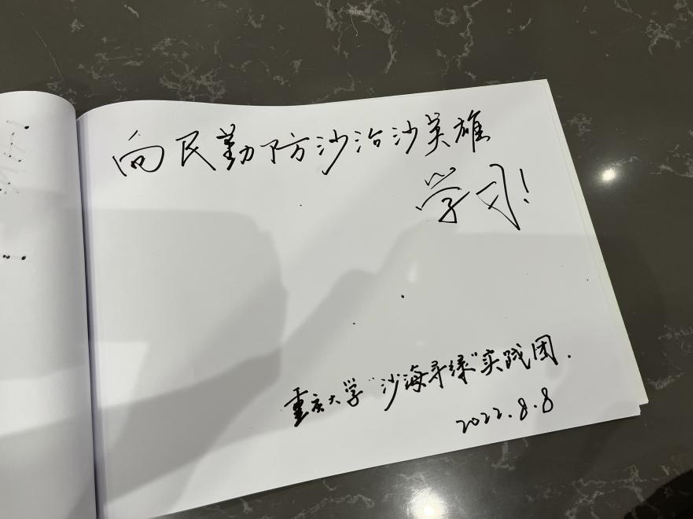 向民勤防沙治沙英雄
学习!
重庆大学"沙海寻绿"实践团.
2022.8.8